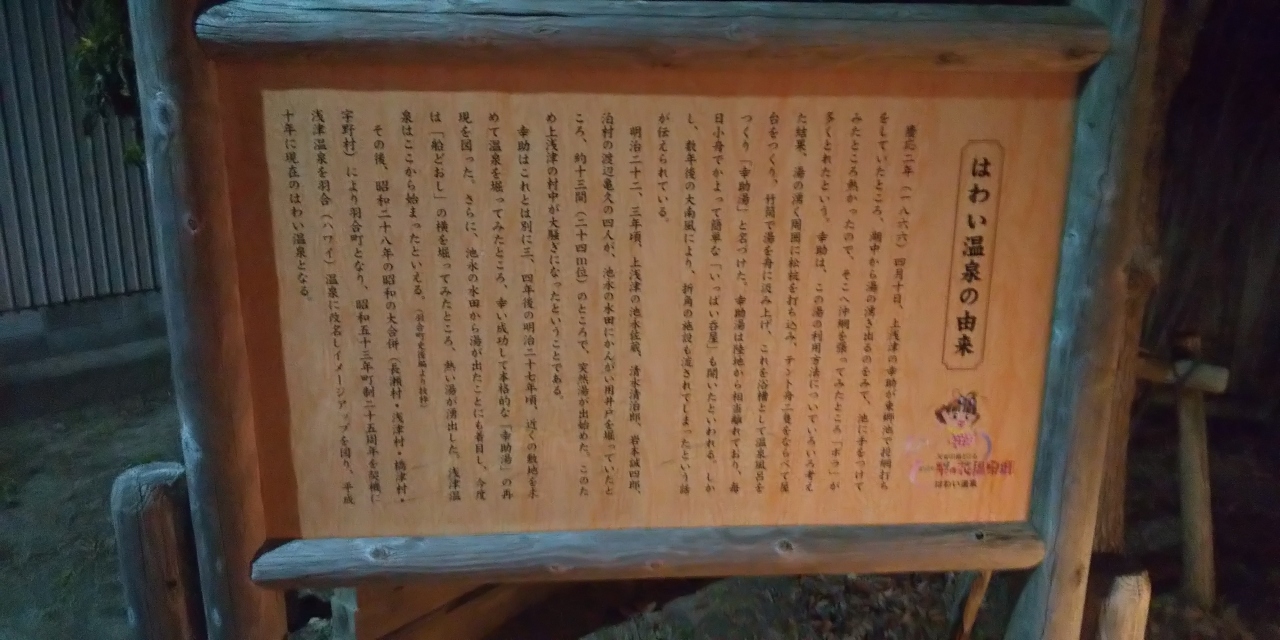 はわい温泉の由来
慶応二年（一八六六）四月十日、上浅津の幸助が東郷池で投網打ち
をしていたところ、湖中から湯の湧き出るのをみて、池に手をつけて
みたところ熱かったので、そこへ沖網を張ってみたところ「ボラ」が
多くとれたという。幸助は、この湯の利用方法についていろいろ考え
た結果、湯の湧く周囲に松杭を打ち込み、テント舟二隻をならべて屋
台をつくり、竹筒で湯を舟に汲み上げ、これを浴槽として温泉風呂を
つくり「幸助湯」と名づけた。幸助湯は陸地から相当離れており、毎
日小舟でかよって簡単な「いっぱい呑屋」も開いたといわれる。しか
し、数年後の大南風により、折角の施設も流されてしまったという話
が伝えられている。
明治二十二、三年頃、上浅津の池永佐蔵、清水清治郎、岩本誠四郎、
泊村の渡辺亀久の四人が、池永の水田にかんがい用井戸を堀っていたと
ころ、約十三間（二十四m位）のところで、突然湯が出始めた。このた
め上浅津の村中が大騒ぎになったということである。
幸助はこれとは別に三、四年後の明治二十七年頃、近くの敷地を求
めて温泉を堀ってみたところ、幸い成功して本格的な「幸助湯」の再
現を図った。さらに、池永の水田から湯が出たことにも着目し、今度
は「船どおし」の横を堀ってみたところ、熱い湯が湧出した。浅津温
泉はここから始まったといえる。（羽合町史後編より抜粋）
その後、昭和二十八年の昭和の大合併（長瀬村・浅津村・橋津村・
宇野村）により羽合町となり、昭和五十三年町制二十五周年を契機に
浅津温泉を羽合（ハワイ）温泉に改名しイメージアップを図り、平成
十年に現在のはわい温泉となる。
はわい温泉